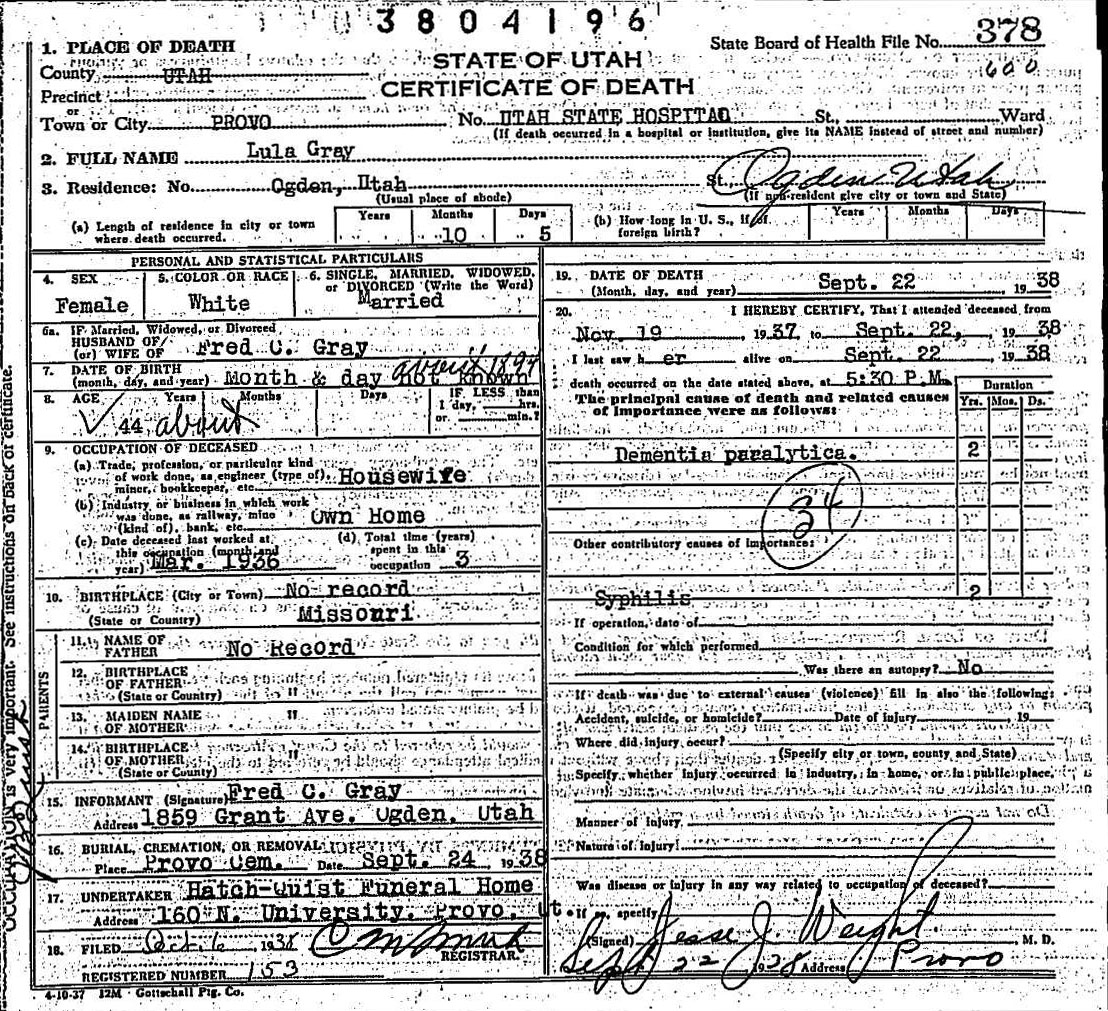 3804196
1. PLACE OF DEATH
State Board of Health File No. 378
County UTAH
STATE OF UTAH
600
Precinct
CERTIFICATE OF DEATH
or
Town or City PROVO No. UTAH STATE HOSPITAL St., Ward
(If death occurred in a hospital or institution, give its NAME instead of street and number)
2. FULL NAME Lula Gray
3. Residence: No. Ogden, Utah St. Ogden Utah
(Usual place of abode) (If non-resident give city or town and State)
(a) Length of residence in city or town where death occurred. Years Months 10 Days 5
(b) How long in U. S., if of foreign birth? Years Months Days
PERSONAL AND STATISTICAL PARTICULARS
4. SEX Female
5. COLOR OR RACE White
6. SINGLE, MARRIED, WIDOWED, or DIVORCED (Write the Word) Married
6a. IF Married, Widowed, or Divorced
HUSBAND OF
(or) WIFE OF Fred C. Gray
7. DATE OF BIRTH about 1894
(month, day, and year) Month & day not known
8. AGE Years Months Days IF LESS than
1 day, hrs.
or min.?
44 about
9. OCCUPATION OF DECEASED
(a) Trade, profession, or particular kind
of work done, as engineer (type of), Housewife
miner, bookkeeper, etc.
(b) Industry or business in which work
was done, as railway, mine Own Home
(kind of), bank, etc.
(c) Date deceased last worked at
this occupation (month and
year) Mar. 1936
(d) Total time (years)
spent in this
occupation 3
10. BIRTHPLACE (City or Town) No record
(State or Country) Missouri
PARENTS
11. NAME OF
FATHER No Record
12. BIRTHPLACE
OF FATHER "
(State or Country)
13. MAIDEN NAME
OF MOTHER "
14. BIRTHPLACE
OF MOTHER "
(State or Country)
15. INFORMANT (Signature) Fred C. Gray
Address 1859 Grant Ave. Ogden, Utah
16. BURIAL, CREMATION, OR REMOVAL
Place Provo Cem. Date Sept. 24 1938
17. UNDERTAKER Hatch-Quist Funeral Home
Address 160 N. University. Provo, Ut.
18. FILED Oct 6 1938
REGISTRAR.
REGISTERED NUMBER 153
4-10-37 12M - Gottschall Ptg. Co.
19. DATE OF DEATH
(Month, day, and year) Sept. 22, 1938
20. I HEREBY CERTIFY, That I attended deceased from
Nov. 19 1937, to Sept. 22, 1938
I last saw her alive on Sept. 22 1938
death occurred on the date stated above, at 5:30 P.M.
The principal cause of death and related causes
of importance were as follows:
Duration
Yrs. Mos. Ds.
Dementia paralytica. 2
34
Other contributory causes of importance:
Syphilis 2
If operation, date of
Condition for which performed
Was there an autopsy? No
If death was due to external causes (violence) fill in also the following:
Accident, suicide, or homicide? Date of injury 19
Where did injury occur?
(Specify city or town, county and State)
Specify whether injury occurred in industry, in home, or in public place,
Manner of injury
Nature of injury
Was disease or injury in any way related to occupation of deceased?
If so, specify
(Signed) Jesse J. Weight M. D.
Sept 22 1938 Address Provo
OCCUPATION is very important. See instructions on back of certificate.